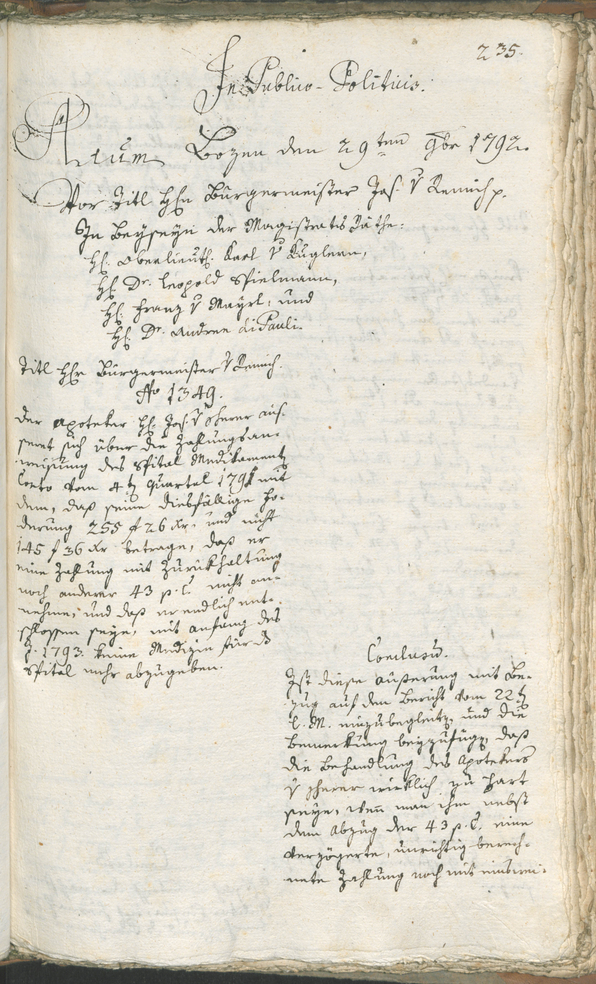 235.
In Publico-Politicis.
Actum Bozen den 29ten 9br 1792.
Vor Titl Hhn Bürgermeister Jos. v Remich p.
In Beyseyn der Magistrats Räthe:
Hh. Oberlieuth. Karl v Kuglern,
Hh. Dr. Leopold Spielmann,
Hh. Franz v Mayrl, und
Hh. Dr. Andreä di Pauli.
Titl Hhn Bürgermeister v Remich.
No 1349.
Der Apoteker Hh. Jos. v
seret sich über die Zahlungsan-
weisung des Spital Medikamenten
Conto vom 4t Quartel 1791 mit
dem, daß seine diesfällige Fo-
derung 255 f 26 Xr, und nicht
145 f 36 Xr betrage, daß er
eine Zahlung mit Zurückhaltung
noch anderer 43 p. C. nicht an-
nehme, und daß er endlich ent-
schlossen seye, mit Anfang des
J. 1793. keine Medizin für d
Spital mehr abzugeben.
Conclusum.
Ist diese Äußerung mit Be-
zug auf den Bericht vom 22t
l. M. einzubegleiten, und die
Bemerkung beyzufügen, daß
die Behandlung des Apotekers
v wirklich zu hart
seye, wenn man ihm nebst
dem Abzug der 43 p. C. eine
verzögerte, unrichtig berech-
nete Zahlung noch mit